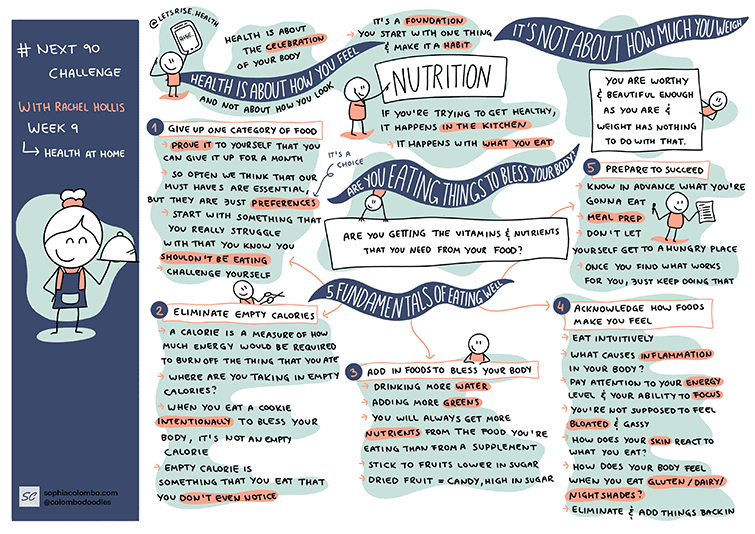 # NEXT 90
CHALLENGE
WITH RACHEL HOLLIS
WEEK 9
↳ HEALTH AT HOME
SC
sophiacolombo.com
@colombodoodles
@LETSRISE.HEALTH
RISE.
HEALTH IS ABOUT
THE CELEBRATION
OF YOUR BODY
HEALTH IS ABOUT HOW YOU FEEL
AND NOT ABOUT HOW YOU LOOK
IT'S A FOUNDATION
→ YOU START WITH ONE THING
& MAKE IT A HABIT
IT'S NOT ABOUT HOW MUCH YOU WEIGH
NUTRITION
IF YOU'RE TRYING TO GET HEALTHY,
IT HAPPENS IN THE KITCHEN
→ IT HAPPENS WITH WHAT YOU EAT
YOU ARE WORTHY
& BEAUTIFUL ENOUGH
AS YOU ARE &
WEIGHT HAS NOTHING
TO DO WITH THAT.
ARE YOU EATING THINGS TO BLESS YOUR BODY
ARE YOU GETTING THE VITAMINS & NUTRIENTS
THAT YOU NEED FROM YOUR FOOD?
5 FUNDAMENTALS OF EATING WELL
1 GIVE UP ONE CATEGORY OF FOOD
→ PROVE IT TO YOURSELF THAT YOU
CAN GIVE IT UP FOR A MONTH
→ SO OFTEN WE THINK THAT OUR
MUST HAVES ARE ESSENTIAL,
BUT THEY ARE JUST PREFERENCES
IT'S A
CHOICE
→ START WITH SOMETHING THAT
YOU REALLY STRUGGLE
WITH THAT YOU KNOW YOU
SHOULDN'T BE EATING
→ CHALLENGE YOURSELF
2 ELIMINATE EMPTY CALORIES
→ A CALORIE IS A MEASURE OF HOW
MUCH ENERGY WOULD BE REQUIRED
TO BURN OFF THE THING THAT YOU ATE
→ WHERE ARE YOU TAKING IN EMPTY
CALORIES?
→ WHEN YOU EAT A COOKIE
INTENTIONALLY TO BLESS YOUR
BODY, IT'S NOT AN EMPTY
CALORIE
→ EMPTY CALORIE IS
SOMETHING THAT YOU EAT THAT
YOU DON'T EVEN NOTICE
3 ADD IN FOODS TO BLESS YOUR BODY
→ DRINKING MORE WATER
→ ADDING MORE GREENS
→ YOU WILL ALWAYS GET MORE
NUTRIENTS FROM THE FOOD YOU'RE
EATING THAN FROM A SUPPLEMENT
→ STICK TO FRUITS LOWER IN SUGAR
→ DRIED FRUIT = CANDY, HIGH IN SUGAR
4 ACKNOWLEDGE HOW FOODS
MAKE YOU FEEL
→ EAT INTUITIVELY
→ WHAT CAUSES INFLAMMATION
IN YOUR BODY?
→ PAY ATTENTION TO YOUR ENERGY
LEVEL & YOUR ABILITY TO FOCUS
→ YOU'RE NOT SUPPOSED TO FEEL
BLOATED & GASSY
→ HOW DOES YOUR SKIN REACT TO
WHAT YOU EAT?
→ HOW DOES YOUR BODY FEEL
WHEN YOU EAT GLUTEN / DAIRY /
NIGHTSHADES?
→ ELIMINATE & ADD THINGS BACK IN
5 PREPARE TO SUCCEED
→ KNOW IN ADVANCE WHAT YOU'RE
GONNA EAT
→ MEAL PREP
→ DON'T LET
YOURSELF GET TO A HUNGRY PLACE
→ ONCE YOU FIND WHAT WORKS
FOR YOU, JUST KEEP DOING THAT